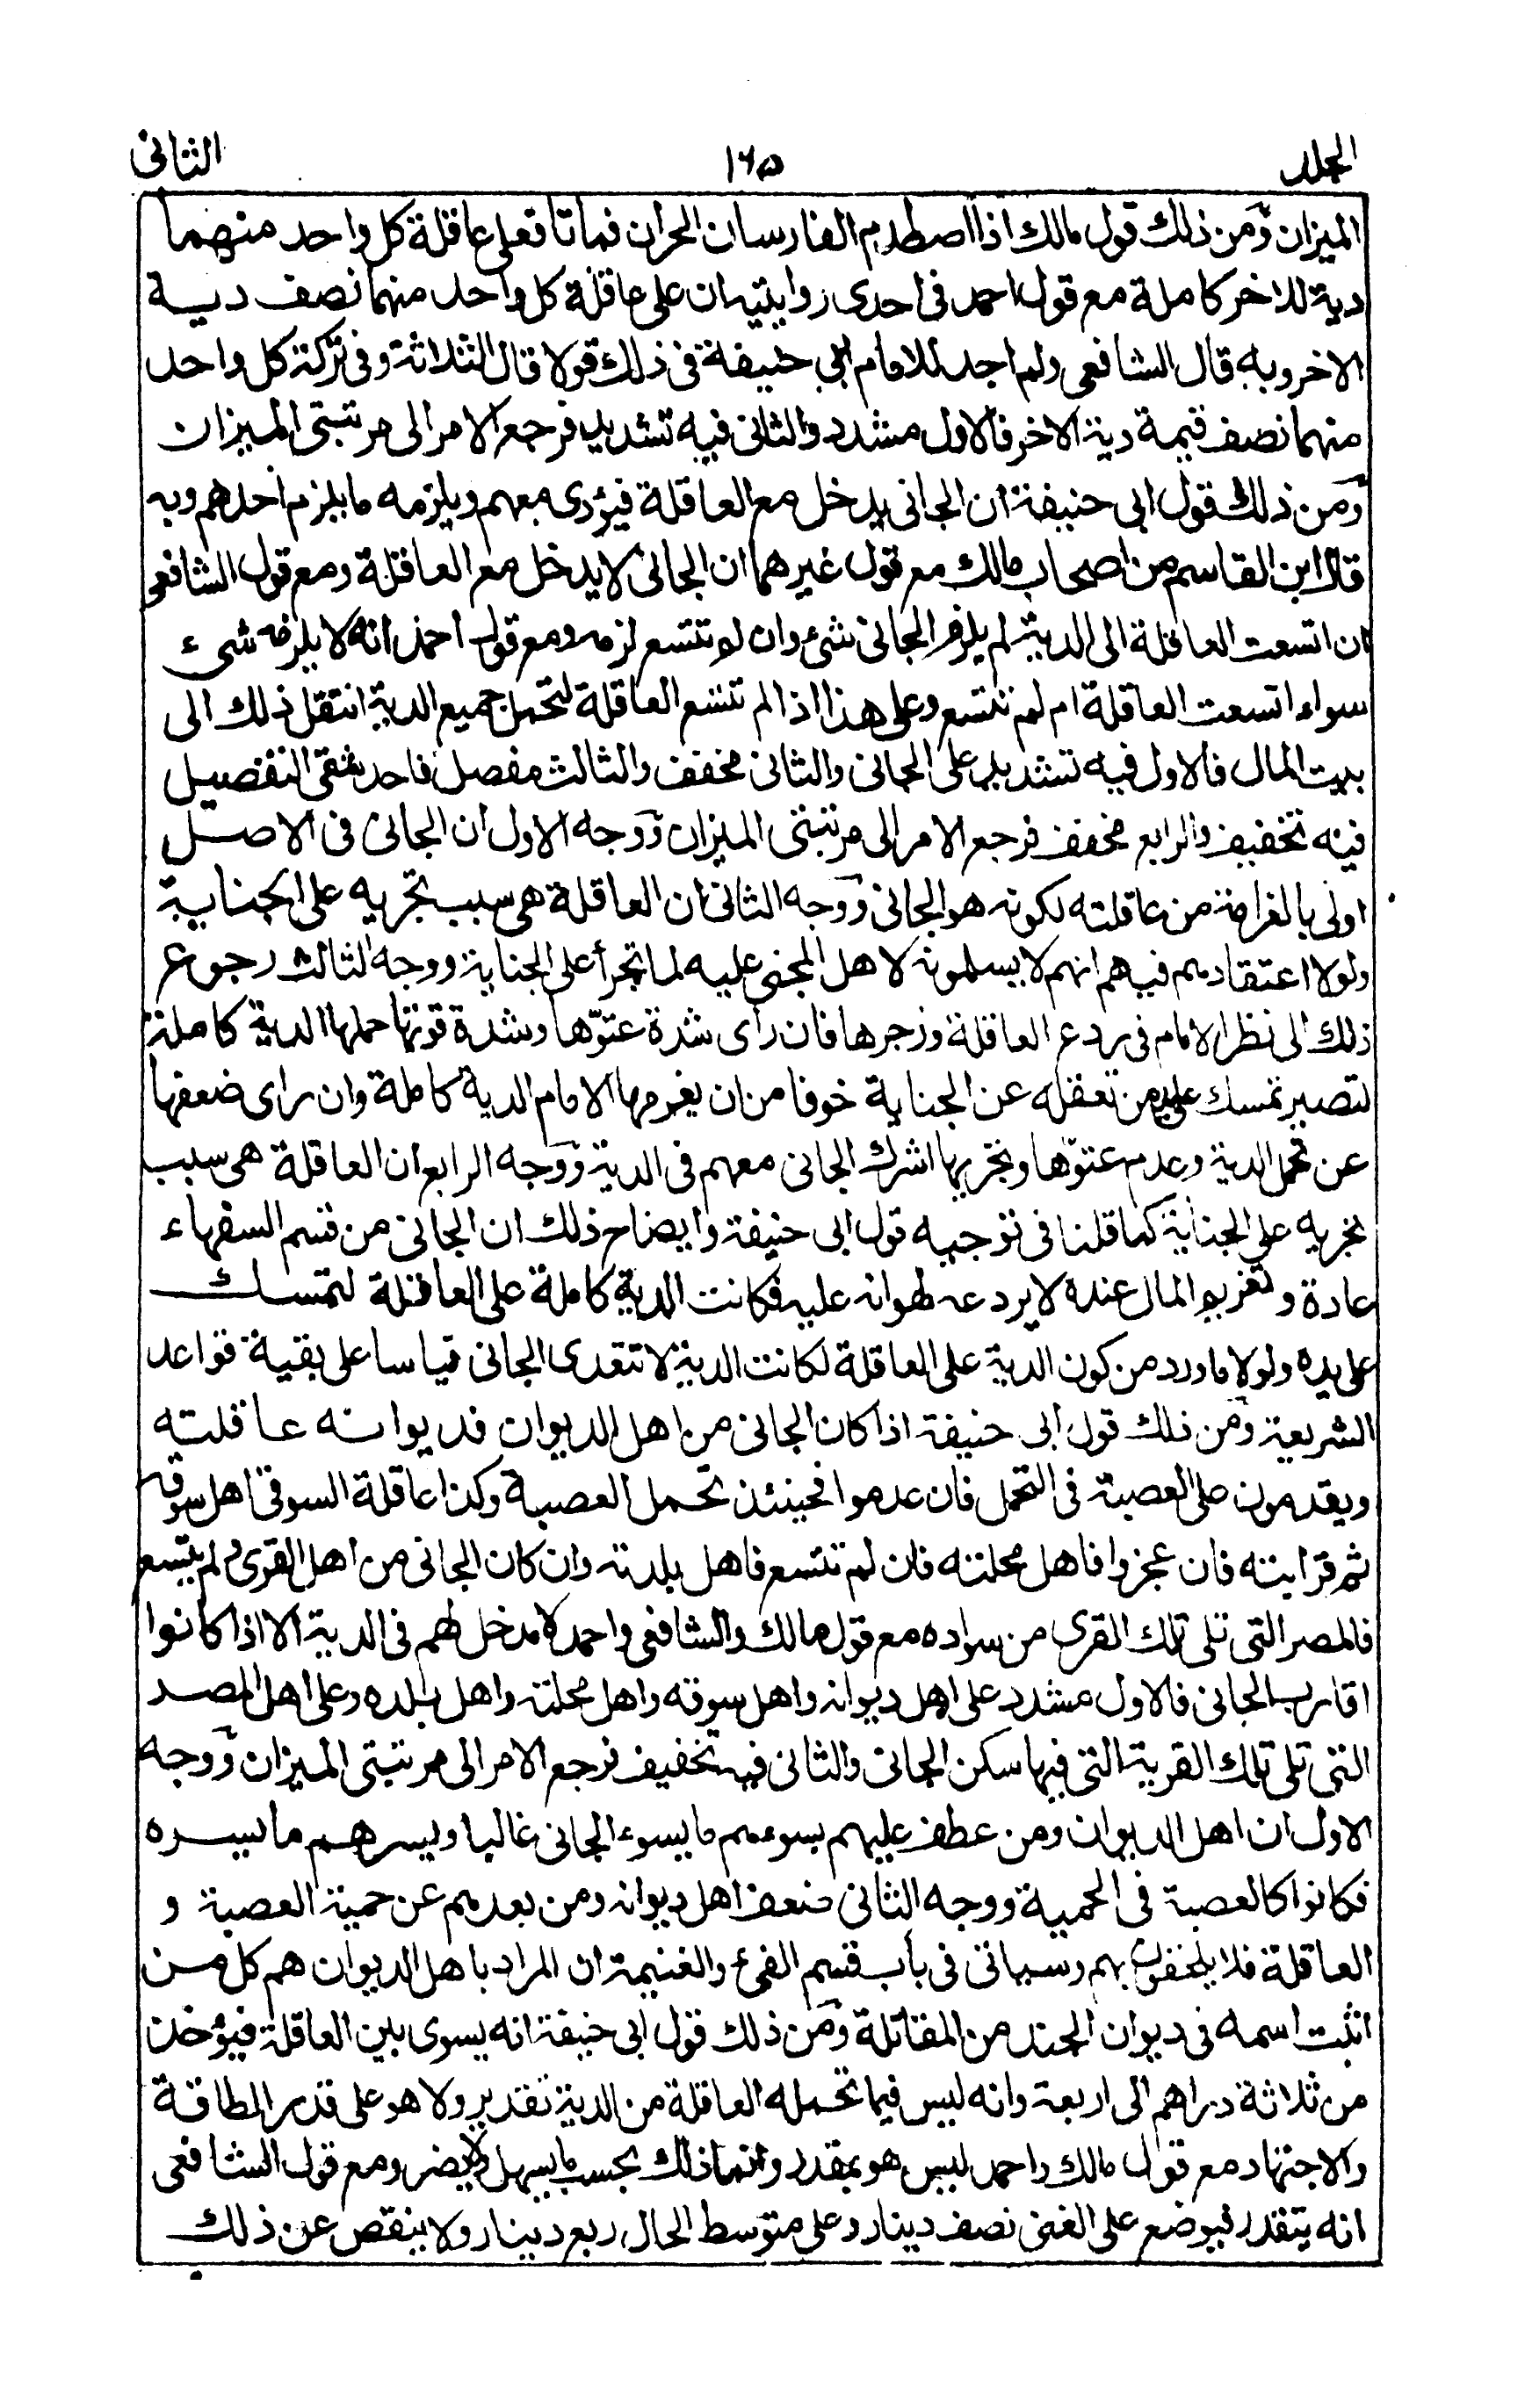 الجلد ١٦٥ الثانى
الميزان ومن ذلك قول مالك اذا اصطدم الفارسان الحران فماتا فعلى عاقلة كل واحد منهما
دية للاخر كاملة مع قول احمد فى احدى روايتيه ان على عاقلة كل واحد منهما نصف دية
الاخر وبه قال الشافعى ولم اجد للامام ابى حنيفة فى ذلك قولا قال الثلاثة وفى تركة كل واحد
منهما نصف قيمة دية الاخر فالاول مشدد والثانى فيه تشديد فرجع الامر الى مرتبتى الميزان
ومن ذلك قول ابى حنيفة ان الجانى يدخل مع العاقلة فيؤدى معهم ويلزمه ما يلزم احدهم وبه
قال ابن القاسم من اصحاب مالك مع قول غيرهما ان الجانى لا يدخل مع العاقلة ومع قول الشافعى
ان اتسعت العاقلة الى الدية لم يلزم الجانى شئ وان لم تتسع لزمه ومع قول احمد انه لا يلزمه شىء
سواء اتسعت العاقلة ام لم تتسع وعلى هذا اذا لم تتسع العاقلة لتحمل جميع الدية انتقل ذلك الى
بيت المال فالاول فيه تشديد على الجانى والثانى مخفف والثالث مفصل فاحد شقى التفصيل
فيه تخفيف والرابع مخفف فرجع الامر الى مرتبتى الميزان ووجه الاول ان الجانى فى الاصل
اولى بالغرامة من عاقلته لكونه هو الجانى ووجه الثانى ان العاقلة هى سبب تجريه على الجناية
ولولا اعتقادهم فيهم انهم لا يسلمونه لاهل المجنى عليه لما تجرأ على الجناية ووجه الثالث رجوع
ذلك الى نظر الامام فى ردع العاقلة وزجرها فان رأى شدة عتوّها وشدة قوتها حملها الدية كاملة
لتصير تمسك على يد من تعقله عن الجناية خوفا من ان يغرمها الامام الدية كاملة وان راى ضعفها
عن تحمل الدية وعدم عتوّها وتجريها اشرك الجانى معهم فى الدية ووجه الرابع ان العاقلة هى سبب
تجريه على الجناية كما قلنا فى توجيه قول ابى حنيفة وايضاح ذلك ان الجانى من قسم السفهاء
عادة وتغريم المال عنده لا يردعه لهوانه عليه فكانت الدية كاملة على العاقلة لتمسك
على يده ولولا ما ورد من كون الدية على العاقلة لكانت الدية لا تتعدى الجانى قياسا على بقية قواعد
الشريعة ومن ذلك قول ابى حنيفة اذا كان الجانى من اهل الديوان فديوانه عاقلته
ويقدمون على العصبة فى التحمل فان عدموا فحينئذ تحمل العصبة وكذا عاقلة السوقى اهل سوقه
ثم قرابته فان عجزوا فاهل محلته فان لم تتسع فاهل بلدته وان كان الجانى من اهل القرى ولم يتسع
فالمصر التى تلى تلك القرى من سواده مع قول مالك والشافعى واحمد لا مدخل لهم فى الدية الا اذا كانوا
اقارب الجانى فالاول مشدد على اهل ديوانه واهل سوقه واهل محلته واهل بلده وعلى اهل المصر
التى تلى تلك القرية التى فيها سكن الجانى والثانى فيه تخفيف فرجع الامر الى مرتبتى الميزان ووجه
الاول ان اهل الديوان ومن عطف عليهم يسوءهم ما يسوء الجانى غالبا ويسرهم ما يسره
فكانوا كالعصبة فى الحمية ووجه الثانى ضعف اهل ديوانه ومن بعدهم عن حمية العصبة و
العاقلة فلا يلحقون بهم وسياتى فى باب قسم الفئ والغنيمة ان المراد باهل الديوان هم كل من
اثبت اسمه فى ديوان الجند من المقاتلة ومن ذلك قول ابى حنيفة انه يسوى بين العاقلة فيؤخذ
من ثلاثة دراهم الى اربعة وانه ليس فيما تحمله العاقلة من الدية تقدير ولا هو على قدر الطاقة
والاجتهاد مع قول مالك واحمد ليس هو بمقدر وانما ذلك بحسب ما يسهل ولا يضر ومع قول الشافعى
انه يتقدر فيوضع على الغنى نصف دينار وعلى متوسط الحال ربع دينار ولا ينقص عن ذلك